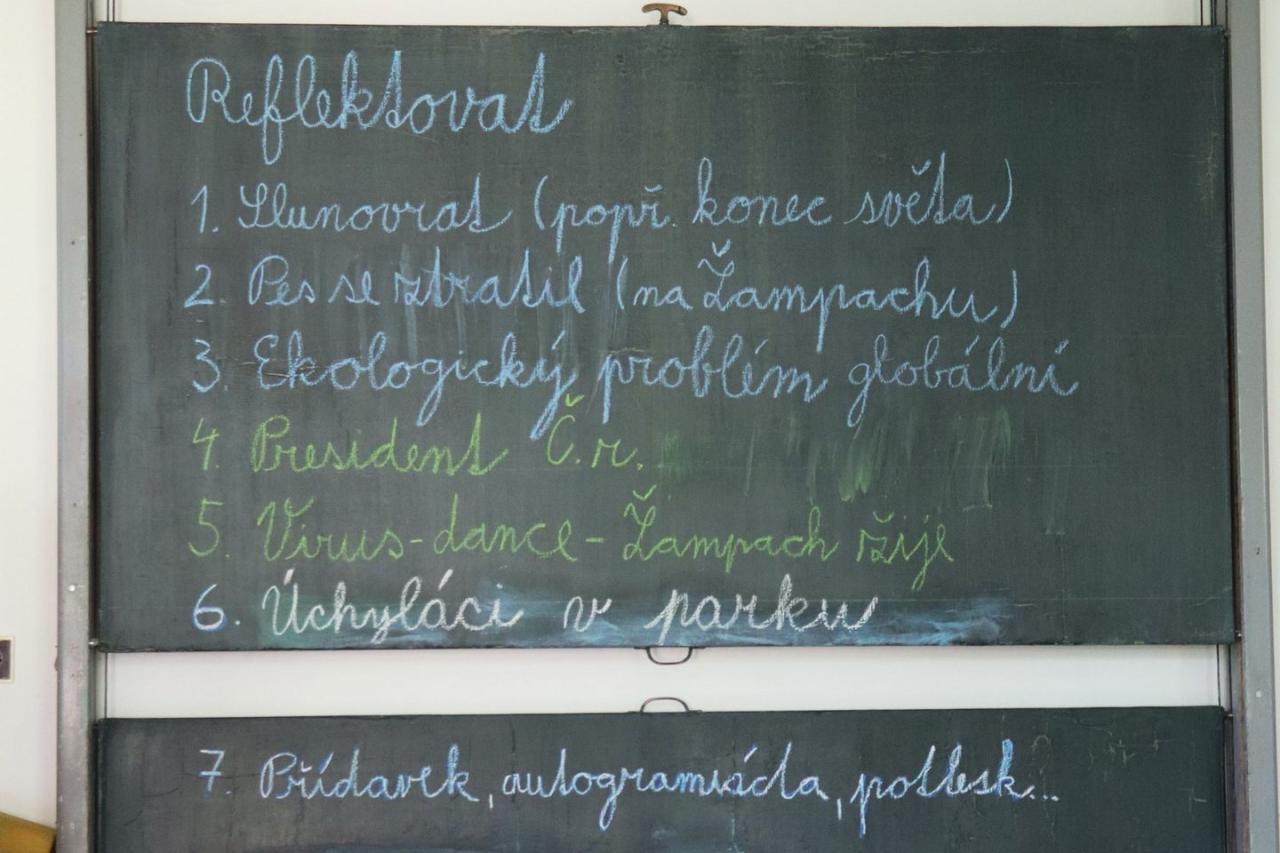 Reflektovat
1. Slunovrat (popř. konec světa)
2. Pes se ztratil (na Žampachu)
3. Ekologický problém globální
4. President Č.r.
5. Virus-dance-Žampach žije
6. Úchyláci v parku
7. Přídavek, autogramiáda, potlesk...